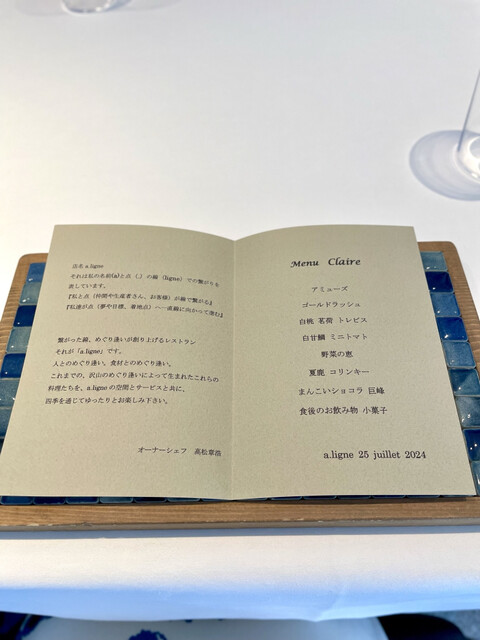 店名 a.ligne
それは私の名前(a)と点（.）の線（ligne）での繋がりを
表しています。
『私と点（仲間や生産者さん、お客様）が線で繋がる』
『私達が点（夢や目標、着地点）へ一直線に向かって進む』
繋がった線、めぐり逢いが創り上げるレストラン
それが「a.ligne」です。
人とのめぐり逢い、食材とのめぐり逢い。
これまでの、沢山のめぐり逢いによって生まれたこれらの
料理たちを、a.ligneの空間とサービスと共に、
四季を通じてゆったりとお楽しみ下さい。
オーナーシェフ 高松章浩
Menu Claire
アミューズ
ゴールドラッシュ
白桃 茗荷 トレビス
白甘鯛 ミニトマト
野菜の恵
夏鹿 コリンキー
まんこいショコラ 巨峰
食後のお飲み物 小菓子
a.ligne 25 juillet 2024